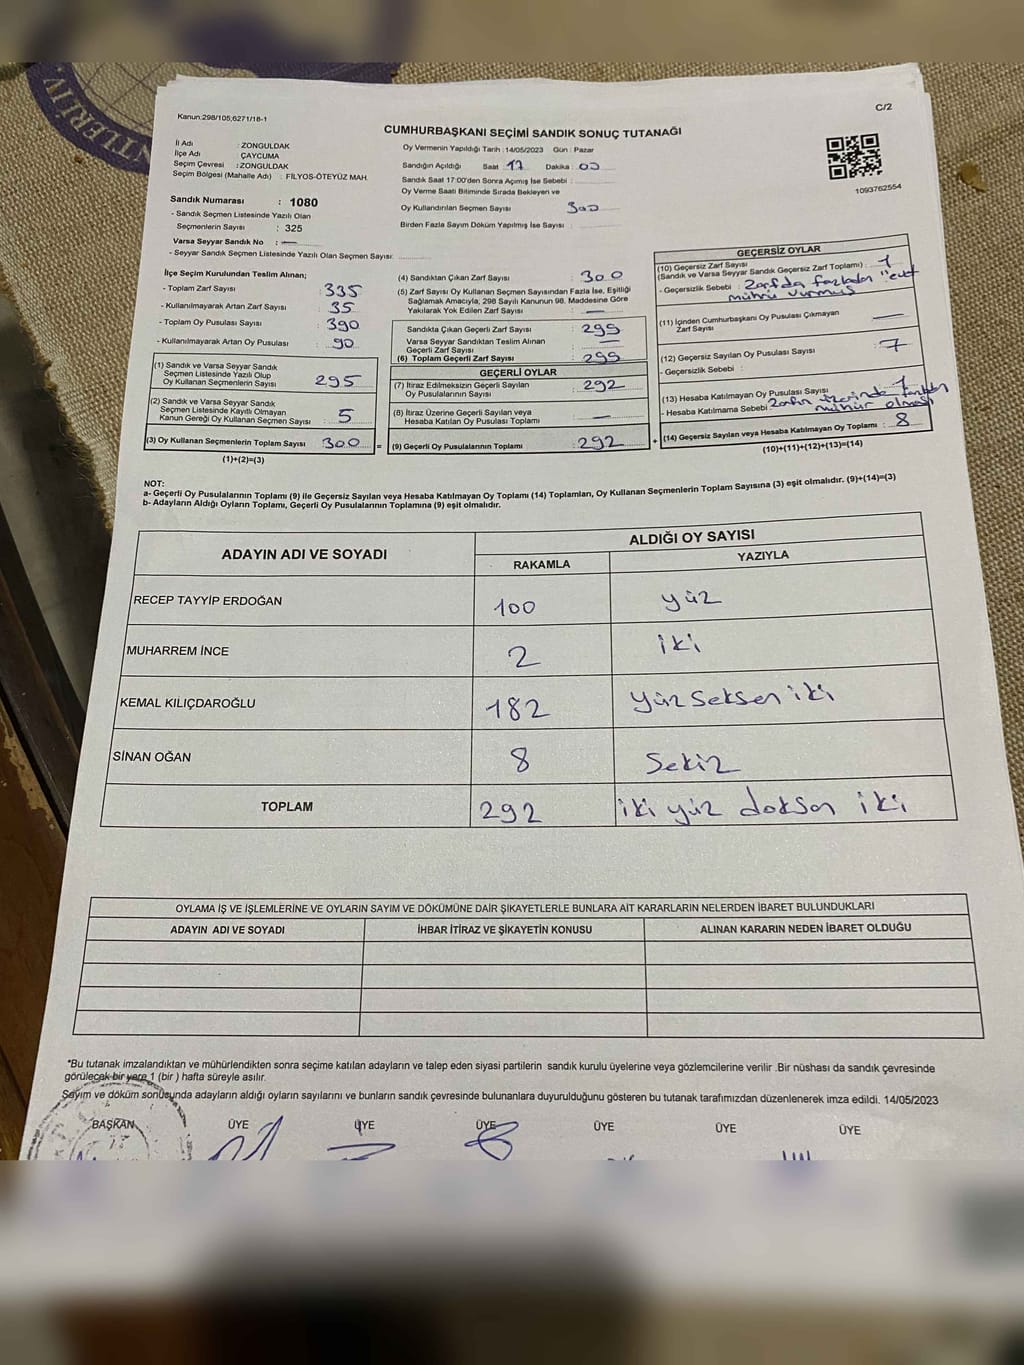 NTLERİ V.
Kanun:298/105,6271/18-1
C/2
CUMHURBAŞKANI SEÇİMİ SANDIK SONUÇ TUTANAĞI
İl Adı : ZONGULDAK
İlçe Adı : ÇAYCUMA
Seçim Çevresi : ZONGULDAK
Seçim Bölgesi (Mahalle Adı) : FİLYOS-ÖTEYÜZ MAH.
Sandık Numarası : 1080
- Sandık Seçmen Listesinde Yazılı Olan
Seçmenlerin Sayısı : 325
Varsa Seyyar Sandık No : —
- Seyyar Sandık Seçmen Listesinde Yazılı Olan Seçmen Sayısı:
Oy Vermenin Yapıldığı Tarih :14/05/2023 Gün : Pazar
Sandığın Açıldığı Saat 17 Dakika : 00
Sandık Saat 17:00'den Sonra Açımış İse Sebebi :
Oy Verme Saati Bitiminde Sırada Bekleyen ve
Oy Kullandırılan Seçmen Sayısı : 300
Birden Fazla Sayım Döküm Yapılmış İse Sayısı :
1093762554
İlçe Seçim Kurulundan Teslim Alınan;
- Toplam Zarf Sayısı : 335
- Kullanılmayarak Artan Zarf Sayısı : 35
- Toplam Oy Pusulası Sayısı : 390
- Kullanılmayarak Artan Oy Pusulası : 90
(1) Sandık ve Varsa Seyyar Sandık
Seçmen Listesinde Yazılı Olup
Oy Kullanan Seçmenlerin Sayısı : 295
(2) Sandık ve Varsa Seyyar Sandık
Seçmen Listesinde Kayıtlı Olmayan
Kanun Gereği Oy Kullanan Seçmen Sayısı : 5
(3) Oy Kullanan Seçmenlerin Toplam Sayısı : 300 =
(1)+(2)=(3)
(4) Sandıktan Çıkan Zarf Sayısı : 300
(5) Zarf Sayısı Oy Kullanan Seçmen Sayısından Fazla İse, Eşitliği
Sağlamak Amacıyla, 298 Sayılı Kanunun 98. Maddesine Göre
Yakılarak Yok Edilen Zarf Sayısı : —
Sandıkta Çıkan Geçerli Zarf Sayısı : 299
Varsa Seyyar Sandıktan Teslim Alınan
Geçerli Zarf Sayısı : —
(6) Toplam Geçerli Zarf Sayısı : 299
GEÇERLİ OYLAR
(7) İtiraz Edilmeksizin Geçerli Sayılan
Oy Pusulasının Sayısı : 292
(8) İtiraz Üzerine Geçerli Sayılan veya
Hesaba Katılan Oy Pusulası Toplamı : —
(9) Geçerli Oy Pusulalarının Toplamı : 292 +
GEÇERSİZ OYLAR
(10) Geçersiz Zarf Sayısı
(Sandık ve Varsa Seyyar Sandık Geçersiz Zarf Toplamı) : 1
- Geçersizlik Sebebi : Zarfda fazladan "evet
mührü vurmuş
(11) İçinden Cumhurbaşkanı Oy Pusulası Çıkmayan
Zarf Sayısı : —
(12) Geçersiz Sayılan Oy Pusulası Sayısı : 7
- Geçersizlik Sebebi :
(13) Hesaba Katılmayan Oy Pusulası Sayısı : 1
- Hesaba Katılmama Sebebi : Zarfın üzerinde fazladan
mühür olması
(14) Geçersiz Sayılan veya Hesaba Katılmayan Oy Toplamı : 8
(10)+(11)+(12)+(13)=(14)
NOT:
a- Geçerli Oy Pusulalarının Toplamı (9) ile Geçersiz Sayılan veya Hesaba Katılmayan Oy Toplamı (14) Toplamları, Oy Kullanan Seçmenlerin Toplam Sayısına (3) eşit olmalıdır. (9)+(14)=(3)
b- Adayların Aldığı Oyların Toplamı, Geçerli Oy Pusulalarının Toplamına (9) eşit olmalıdır.
ADAYIN ADI VE SOYADI
ALDIĞI OY SAYISI
RAKAMLA YAZIYLA
RECEP TAYYİP ERDOĞAN 100 yüz
MUHARREM İNCE 2 iki
KEMAL KILIÇDAROĞLU 182 yüz seksen iki
SİNAN OĞAN 8 Sekiz
TOPLAM 292 iki yüz doksan iki
OYLAMA İŞ VE İŞLEMLERİNE VE OYLARIN SAYIM VE DÖKÜMÜNE DAİR ŞİKAYETLERLE BUNLARA AİT KARARLARIN NELERDEN İBARET BULUNDUKLARI
ADAYIN ADI VE SOYADI İHBAR İTİRAZ VE ŞİKAYETİN KONUSU ALINAN KARARIN NEDEN İBARET OLDUĞU
*Bu tutanak imzalandıktan ve mühürlendikten sonra seçime katılan adayların ve talep eden siyasi partilerin sandık kurulu üyelerine veya gözlemcilerine verilir .Bir nüshası da sandık çevresinde
görülecek bir yere 1 (bir ) hafta süreyle asılır.
Sayım ve döküm sonucunda adayların aldığı oyların sayılarını ve bunların sandık çevresinde bulunanlara duyurulduğunu gösteren bu tutanak tarafımızdan düzenlenerek imza edildi. 14/05/2023
BAŞKAN ÜYE ÜYE ÜYE ÜYE ÜYE ÜYE